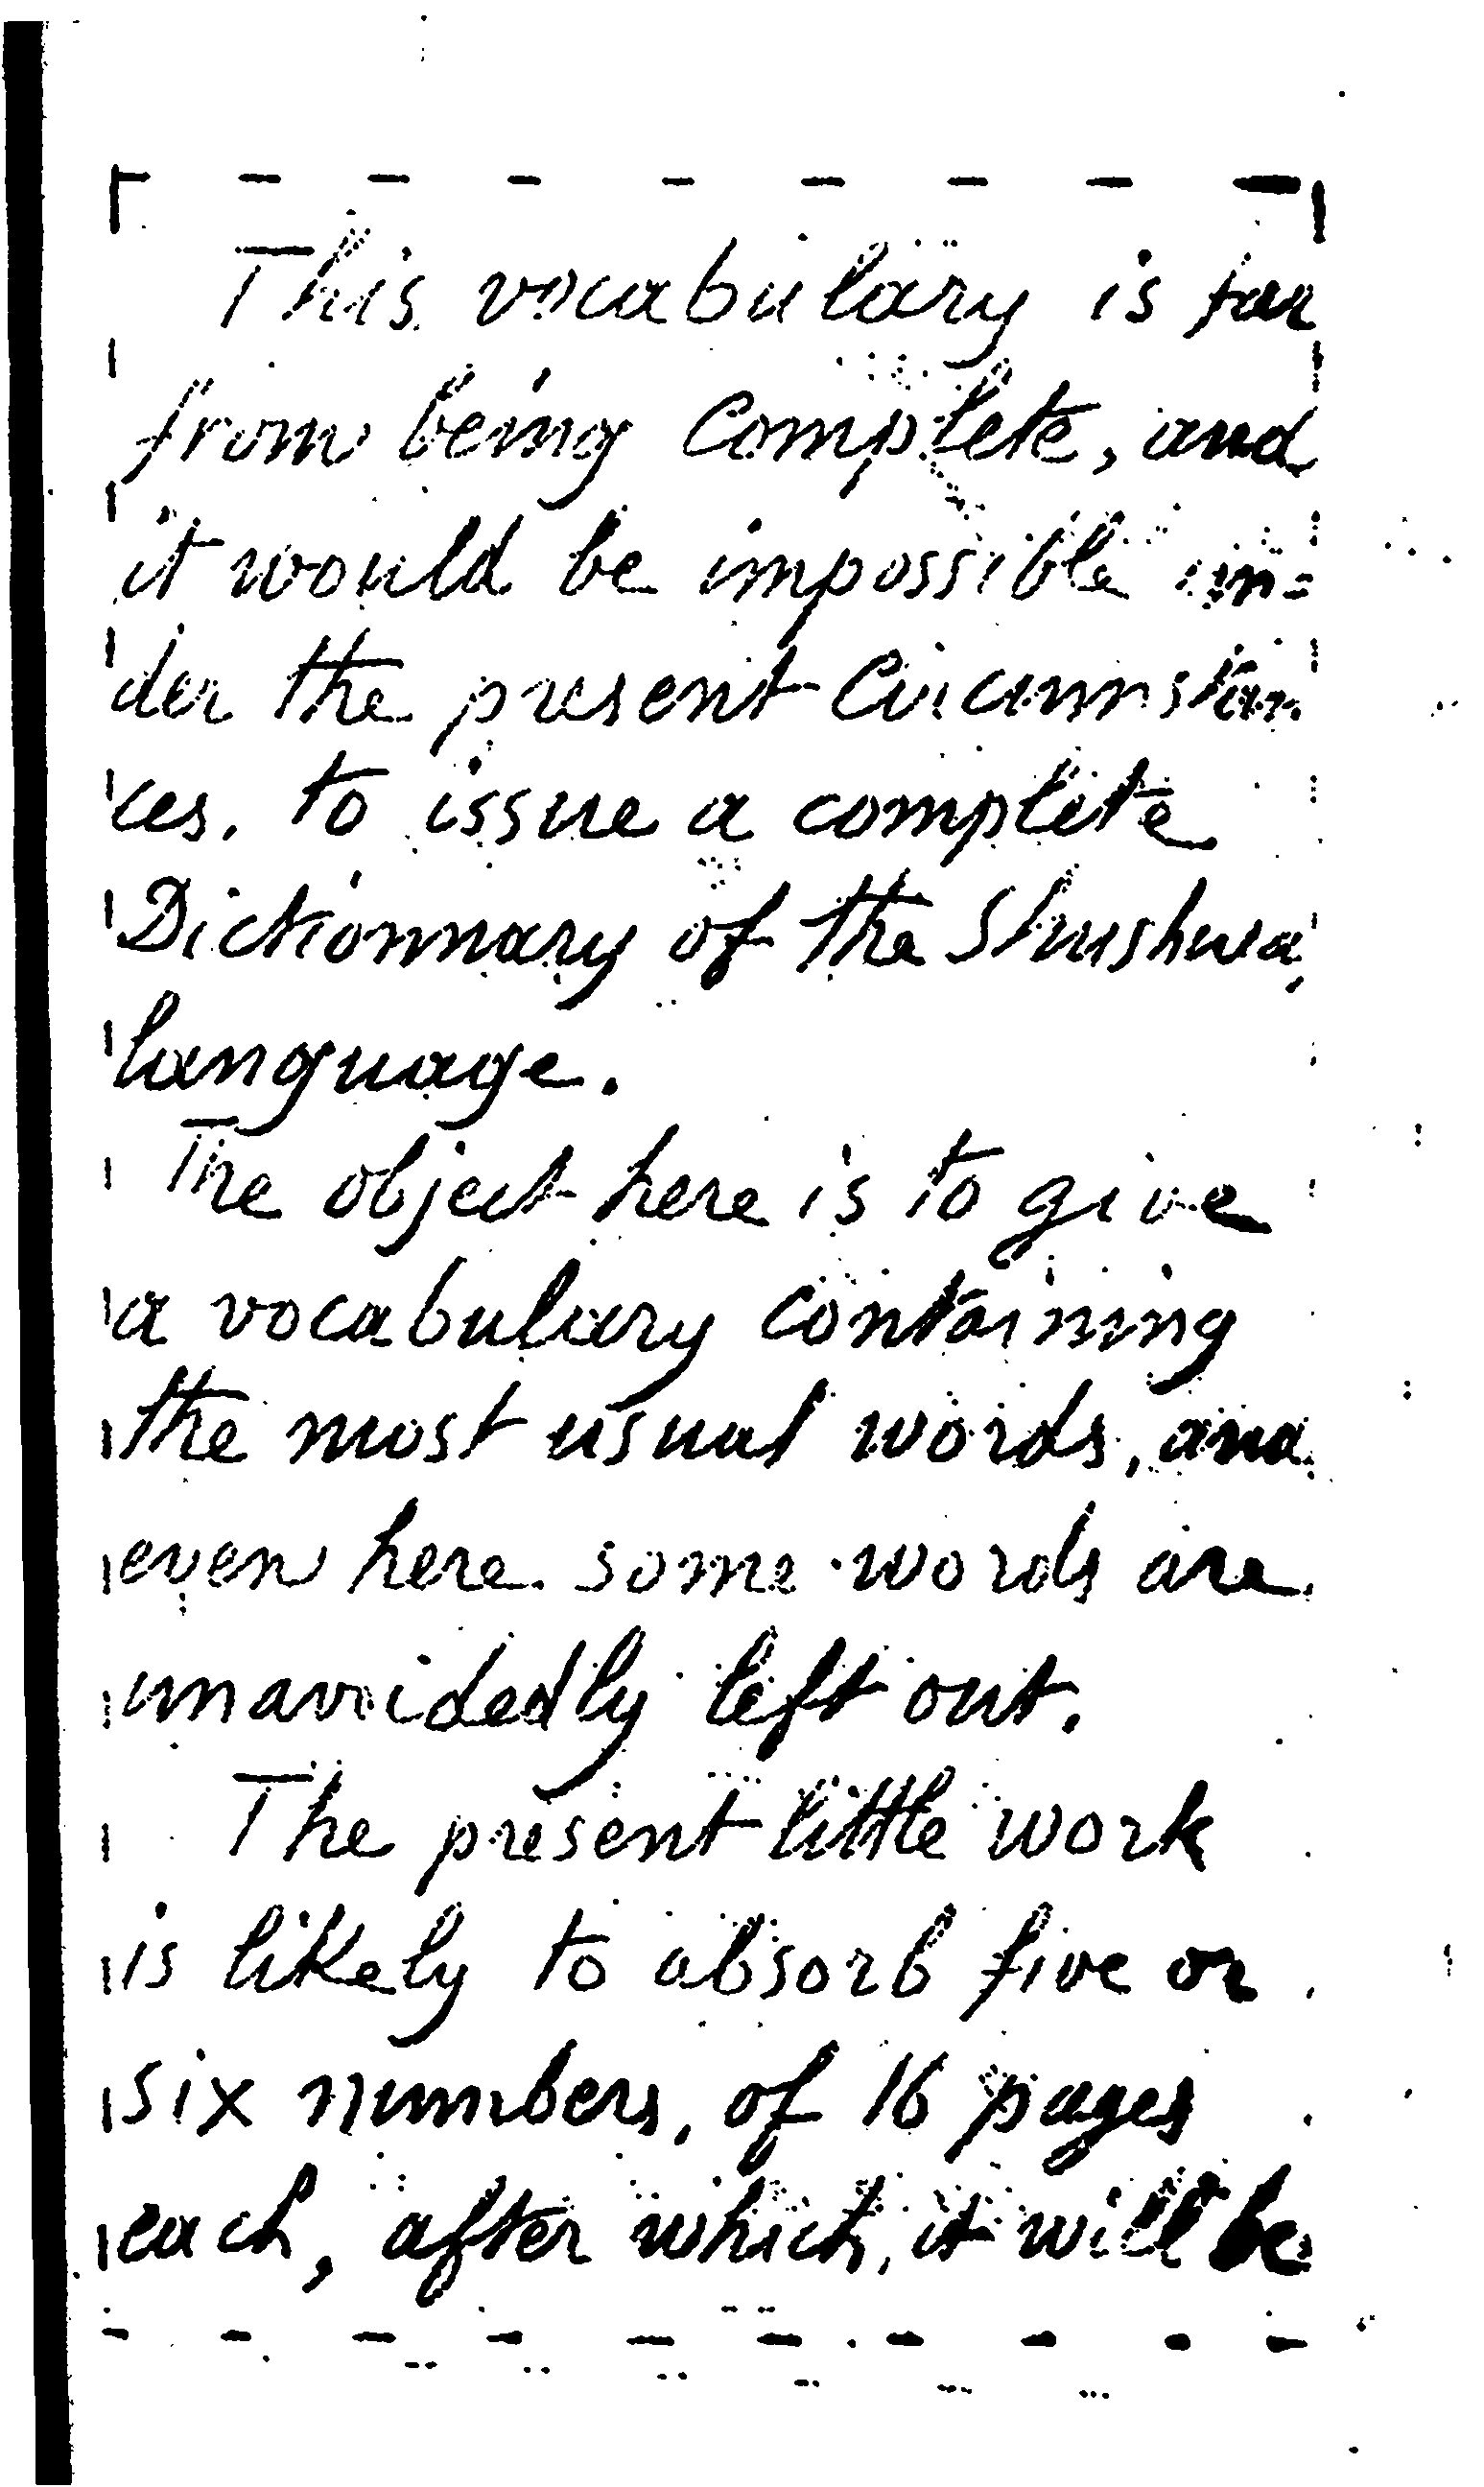 This vocabulary is far
from being complete, and
it would be impossible un=
der the present circumstan
ces, to issue a complete
Dictionnary of the Shushwa
language.
The object here is to give
a vocabulary containing
the most usual words, and
even here some words are
unavoidedly left out.
The present little work
is likely to absorb five or
six numbers, of 16 pages
each, after which, it will be